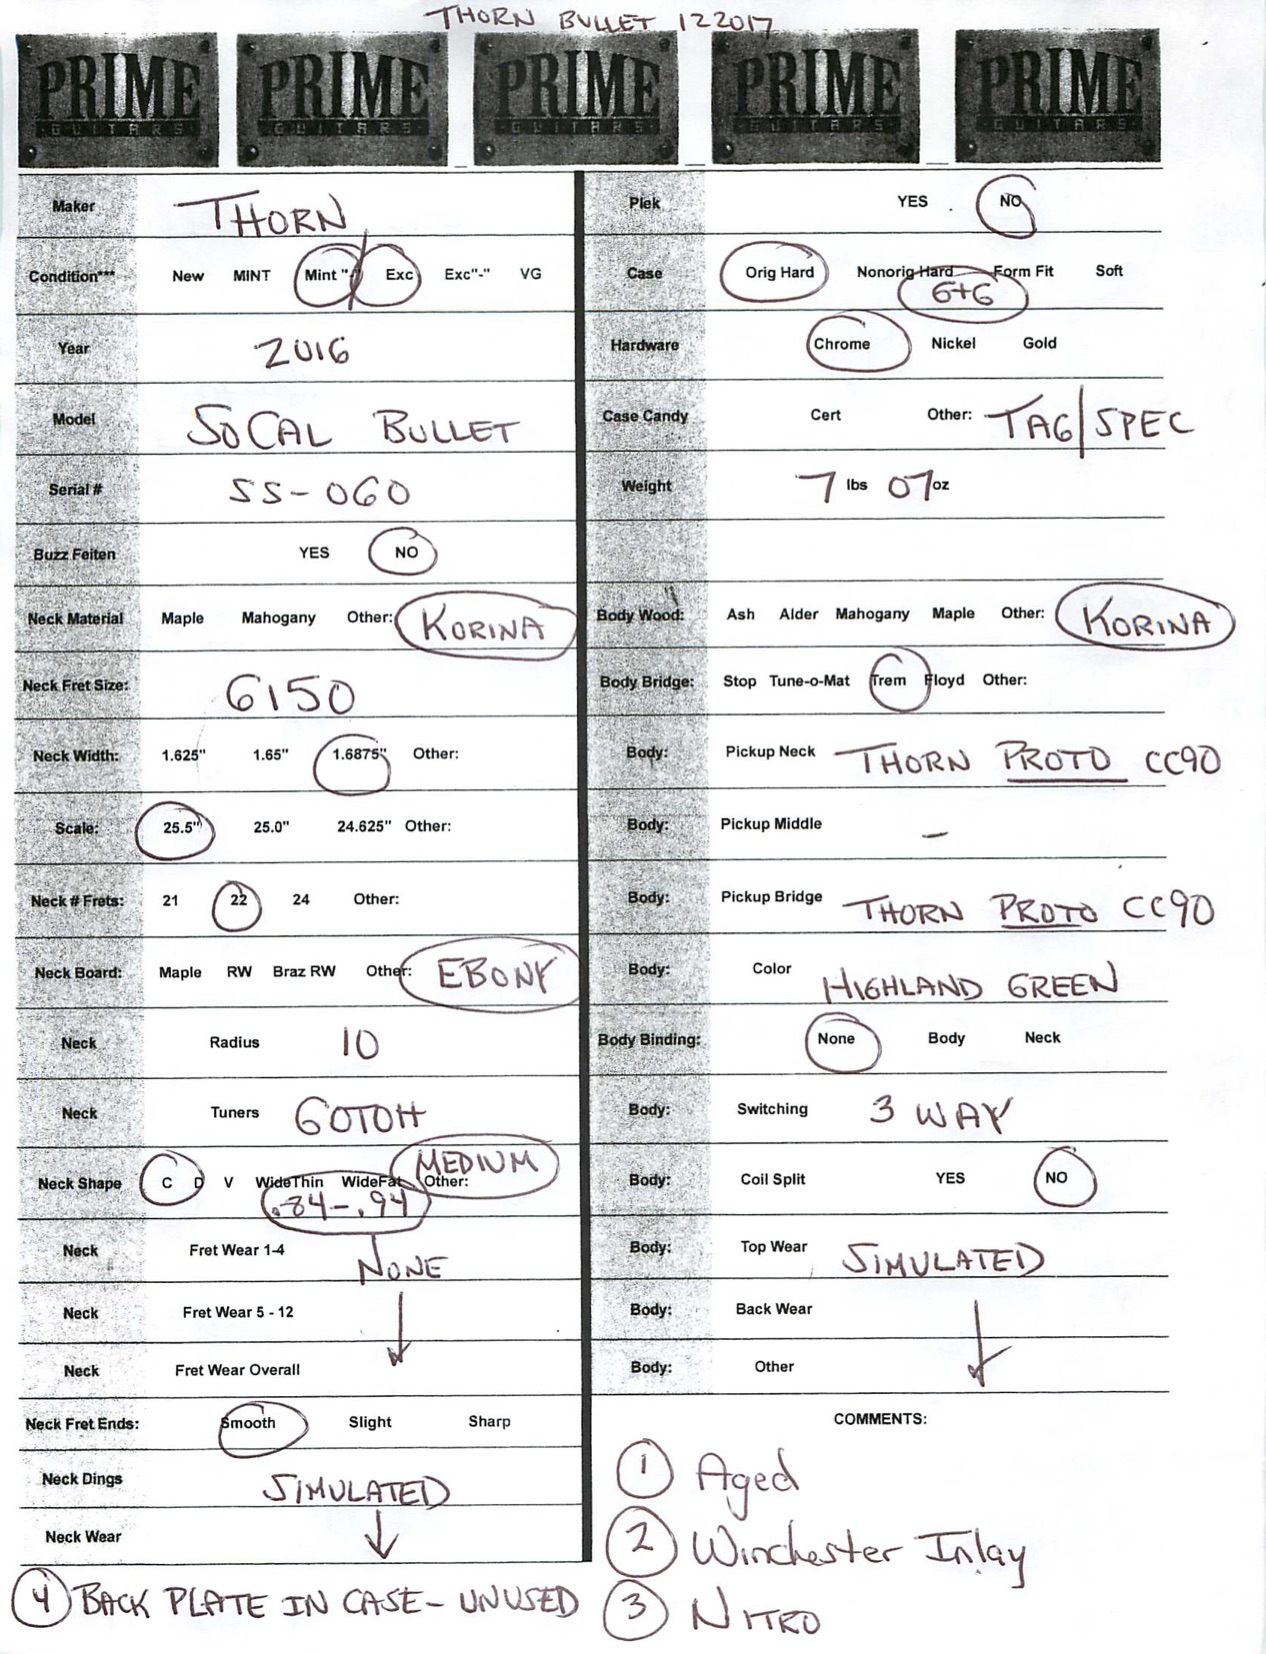 THORN BULLET 122017
PRIME GUITARS PRIME GUITARS PRIME GUITARS PRIME GUITARS PRIME GUITARS
Maker THORN
Condition*** New MINT Mint "-" / Exc Exc"-" VG
Year 2016
Model SOCAL BULLET
Serial # SS-060
Buzz Feiten YES NO
Neck Material Maple Mahogany Other: KORINA
Neck Fret Size: 6150
Neck Width: 1.625" 1.65" 1.6875" Other:
Scale: 25.5" 25.0" 24.625" Other:
Neck # Frets: 21 22 24 Other:
Neck Board: Maple RW Braz RW Other: EBONY
Neck Radius 10
Neck Tuners GOTOH
Neck Shape C D V WideThin WideFat Other: MEDIUM
.84-.94
Neck Fret Wear 1-4 NONE
Neck Fret Wear 5 - 12
Neck Fret Wear Overall
Neck Fret Ends: Smooth Slight Sharp
Neck Dings SIMULATED
Neck Wear
Plek YES NO
Case Orig Hard Nonorig Hard Form Fit Soft
G+G
Hardware Chrome Nickel Gold
Case Candy Cert Other: TAG/SPEC
Weight 7 lbs 07 oz
Body Wood: Ash Alder Mahogany Maple Other: KORINA
Body Bridge: Stop Tune-o-Mat Trem Floyd Other:
Body: Pickup Neck THORN PROTO CC90
Body: Pickup Middle -
Body: Pickup Bridge THORN PROTO CC90
Body: Color HIGHLAND GREEN
Body Binding: None Body Neck
Body: Switching 3 WAY
Body: Coil Split YES NO
Body: Top Wear SIMULATED
Body: Back Wear
Body: Other
COMMENTS:
1 Aged
2 Winchester Inlay
3 NITRO
4 BACK PLATE IN CASE - UNUSED